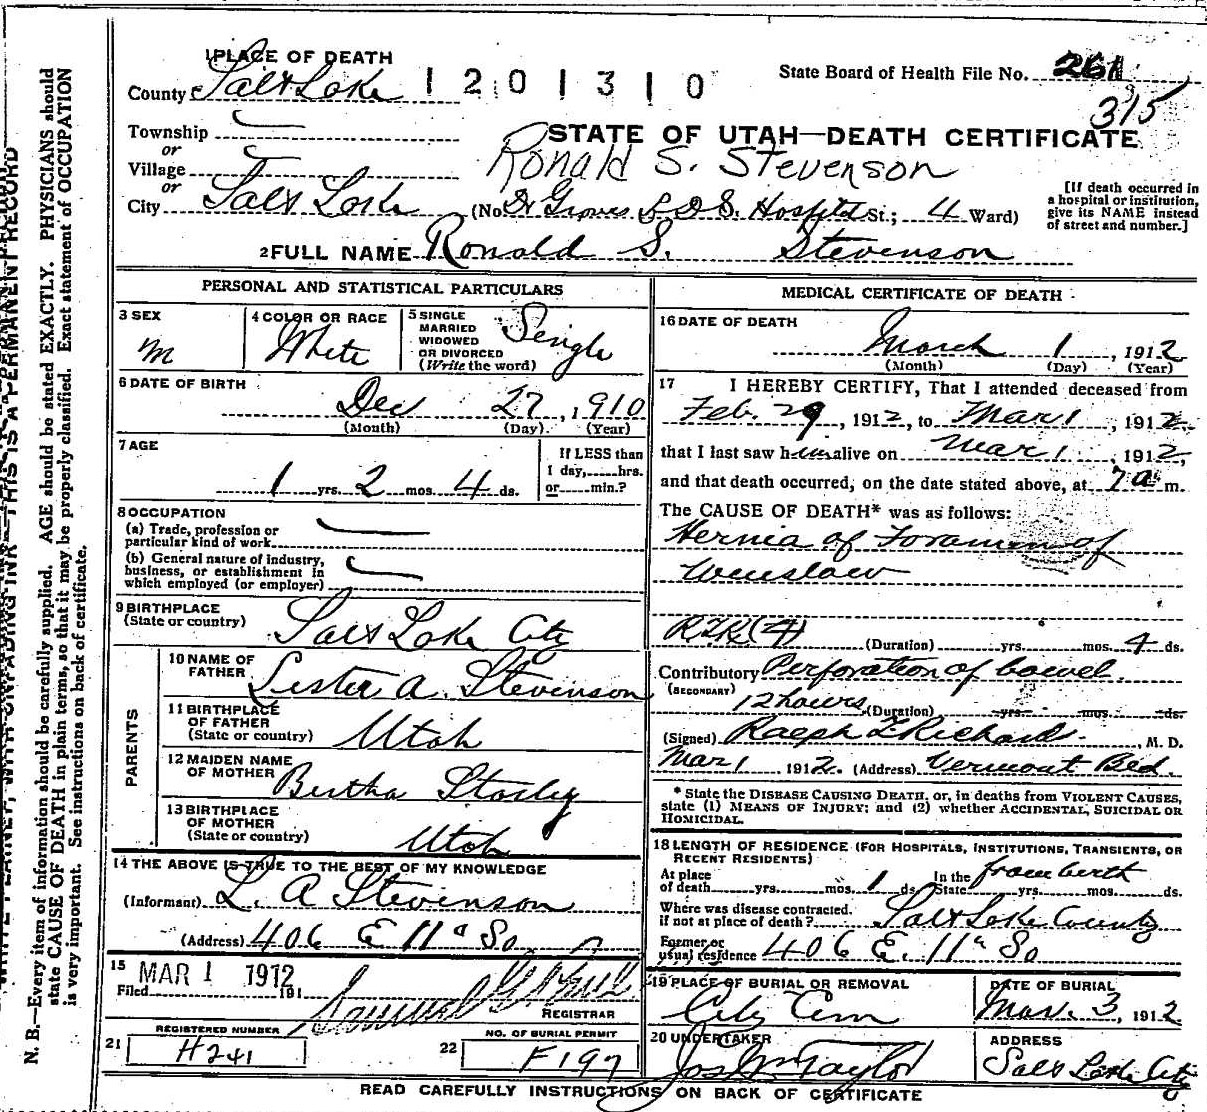 1 PLACE OF DEATH
County Salt Lake
1201310
State Board of Health File No. 261
315
Township
or
Village
or
City Salt Lake
STATE OF UTAH—DEATH CERTIFICATE
Ronald S. Stevenson
(No. Dr Groves L D S. Hospital St.; 4 Ward)
[If death occurred in
a hospital or institution,
give its NAME instead
of street and number.]
2 FULL NAME Ronald S. Stevenson
PERSONAL AND STATISTICAL PARTICULARS
3 SEX
M
4 COLOR OR RACE
White
5 SINGLE
MARRIED
WIDOWED
OR DIVORCED
(Write the word)
Single
6 DATE OF BIRTH
Dec 27, 1910
(Month) (Day) (Year)
7 AGE
1 yrs. 2 mos. 4 ds.
If LESS than
1 day,......hrs.
or......min.?
8 OCCUPATION
(a) Trade, profession or
particular kind of work
(b) General nature of industry,
business, or establishment in
which employed (or employer)
9 BIRTHPLACE
(State or country)
Salt Lake City
PARENTS
10 NAME OF
FATHER
Lester A. Stevenson
11 BIRTHPLACE
OF FATHER
(State or country)
Utah
12 MAIDEN NAME
OF MOTHER
Bertha
13 BIRTHPLACE
OF MOTHER
(State or country)
Utah
14 THE ABOVE IS TRUE TO THE BEST OF MY KNOWLEDGE
(Informant) L. A Stevenson
(Address) 406 E 11th So.
15
Filed MAR 1 1912 191
Samuel G.
REGISTRAR
REGISTERED NUMBER
21 H241
NO. OF BURIAL PERMIT
22 F197
MEDICAL CERTIFICATE OF DEATH
16 DATE OF DEATH
March 1, 1912
(Month) (Day) (Year)
17 I HEREBY CERTIFY, That I attended deceased from
Feb. 29, 1912, to Mar 1, 1912.
that I last saw him alive on Mar 1, 1912,
and that death occurred, on the date stated above, at 7 a m.
The CAUSE OF DEATH* was as follows:
Hernia of Foramen of
Winslow
R.T.R. (4) (Duration) yrs. mos. 4 ds.
Contributory Perforation of bowel.
(SECONDARY)
12 hours (Duration) yrs. mos. ds.
(Signed) Ralph T Richards., M. D.
Mar 1 1912. (Address) Vermont Bld.
* State the DISEASE CAUSING DEATH, or, in deaths from VIOLENT CAUSES,
state (1) MEANS OF INJURY; and (2) whether ACCIDENTAL, SUICIDAL OR
HOMICIDAL.
18 LENGTH OF RESIDENCE (FOR HOSPITALS, INSTITUTIONS, TRANSIENTS, OR
RECENT RESIDENTS)
At place
of death yrs. mos. 1 ds.
In the
State from birth yrs. mos. ds.
Where was disease contracted.
if not at place of death? Salt Lake County
Former or
usual residence 406 E. 11th So
19 PLACE OF BURIAL OR REMOVAL
City Cem
DATE OF BURIAL
Mar. 3, 1912.
20 UNDERTAKER
Jos Wm Taylor
ADDRESS
Salt Lake City
READ CAREFULLY INSTRUCTIONS ON BACK OF CERTIFICATE
WRITE PLAINLY, WITH UNFADING INK—THIS IS A PERMANENT RECORD
N. B.—Every item of information should be carefully supplied. AGE should be stated EXACTLY. PHYSICIANS should
state CAUSE OF DEATH in plain terms, so that it may be properly classified. Exact statement of OCCUPATION
is very important. See instructions on back of certificate.